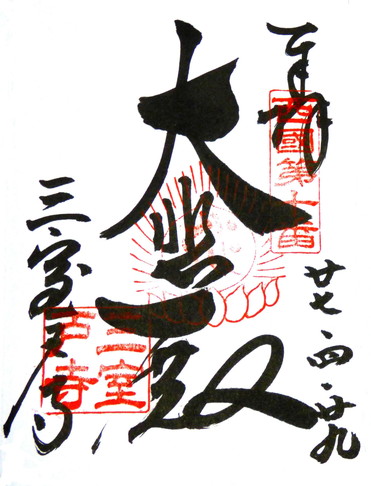 奉拝
西國第十番
廿七・四・廿九
大悲殿
三室戸寺
三室
戸寺